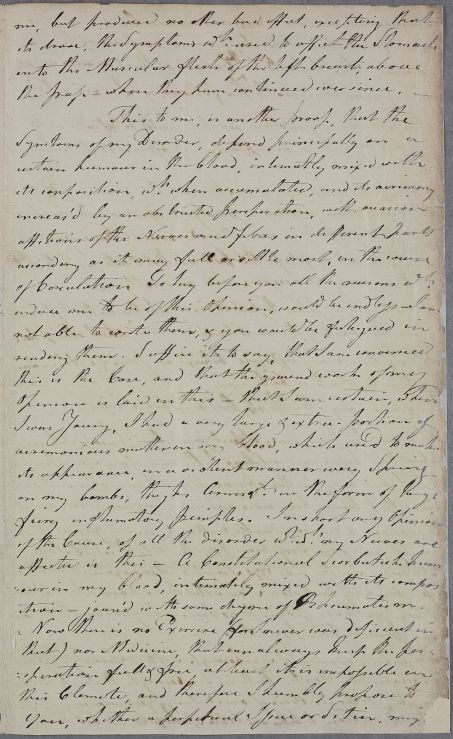 me, but produced no other bad effect, excepting that
its drove, the Symptoms wch. used to affect the Stomach
into the Muscular flesh of the left breast, above
the pap - where they have continued ever since. -
This to me, is another proof, that the
Symtoms of my Disorder, depend principally on a
certain humour in the blood, intimately mixed with
its composition, wch. when accumulated, and its acrimony
increas'd by an obstructed perspiration, will occasion
affections of the Nerves and fibres in different parts
according as it may fall or settle most, in the course
of Circulation To lay before you all the reasons wch.
induce me to be of this Opinion, would be endless - I am
not able to write them, & you would be fatigued in
reading them. Suffice it to say, that I am convinced
this is the Case, and that the ground work of my
Opinion is laid in this - that I am certain, when
I was Young, I had a very large & extra: portion of
acrimonious matter in my blood, which used to make
its appearance, in a violent manner every Spring
on my thighs Arms &c. in the form of large
fiery inflamatory pimples. In short my Opinion
of the Cause, of all the disorder wch. my Nerves are
affected is this - A Constitutional Scorbutick Hum
our in my blood, intimately mixed with its compos
ition - join'd with some degree of Rheumatism.
Now there is no Exercise (for I never was deficient in
that) nor Medicine, that can always keep the per
:spiration full & free at least it is impossible in
this Climate, and therefore I humbly propose to
You, whether a perpetual Issue or Setion, may